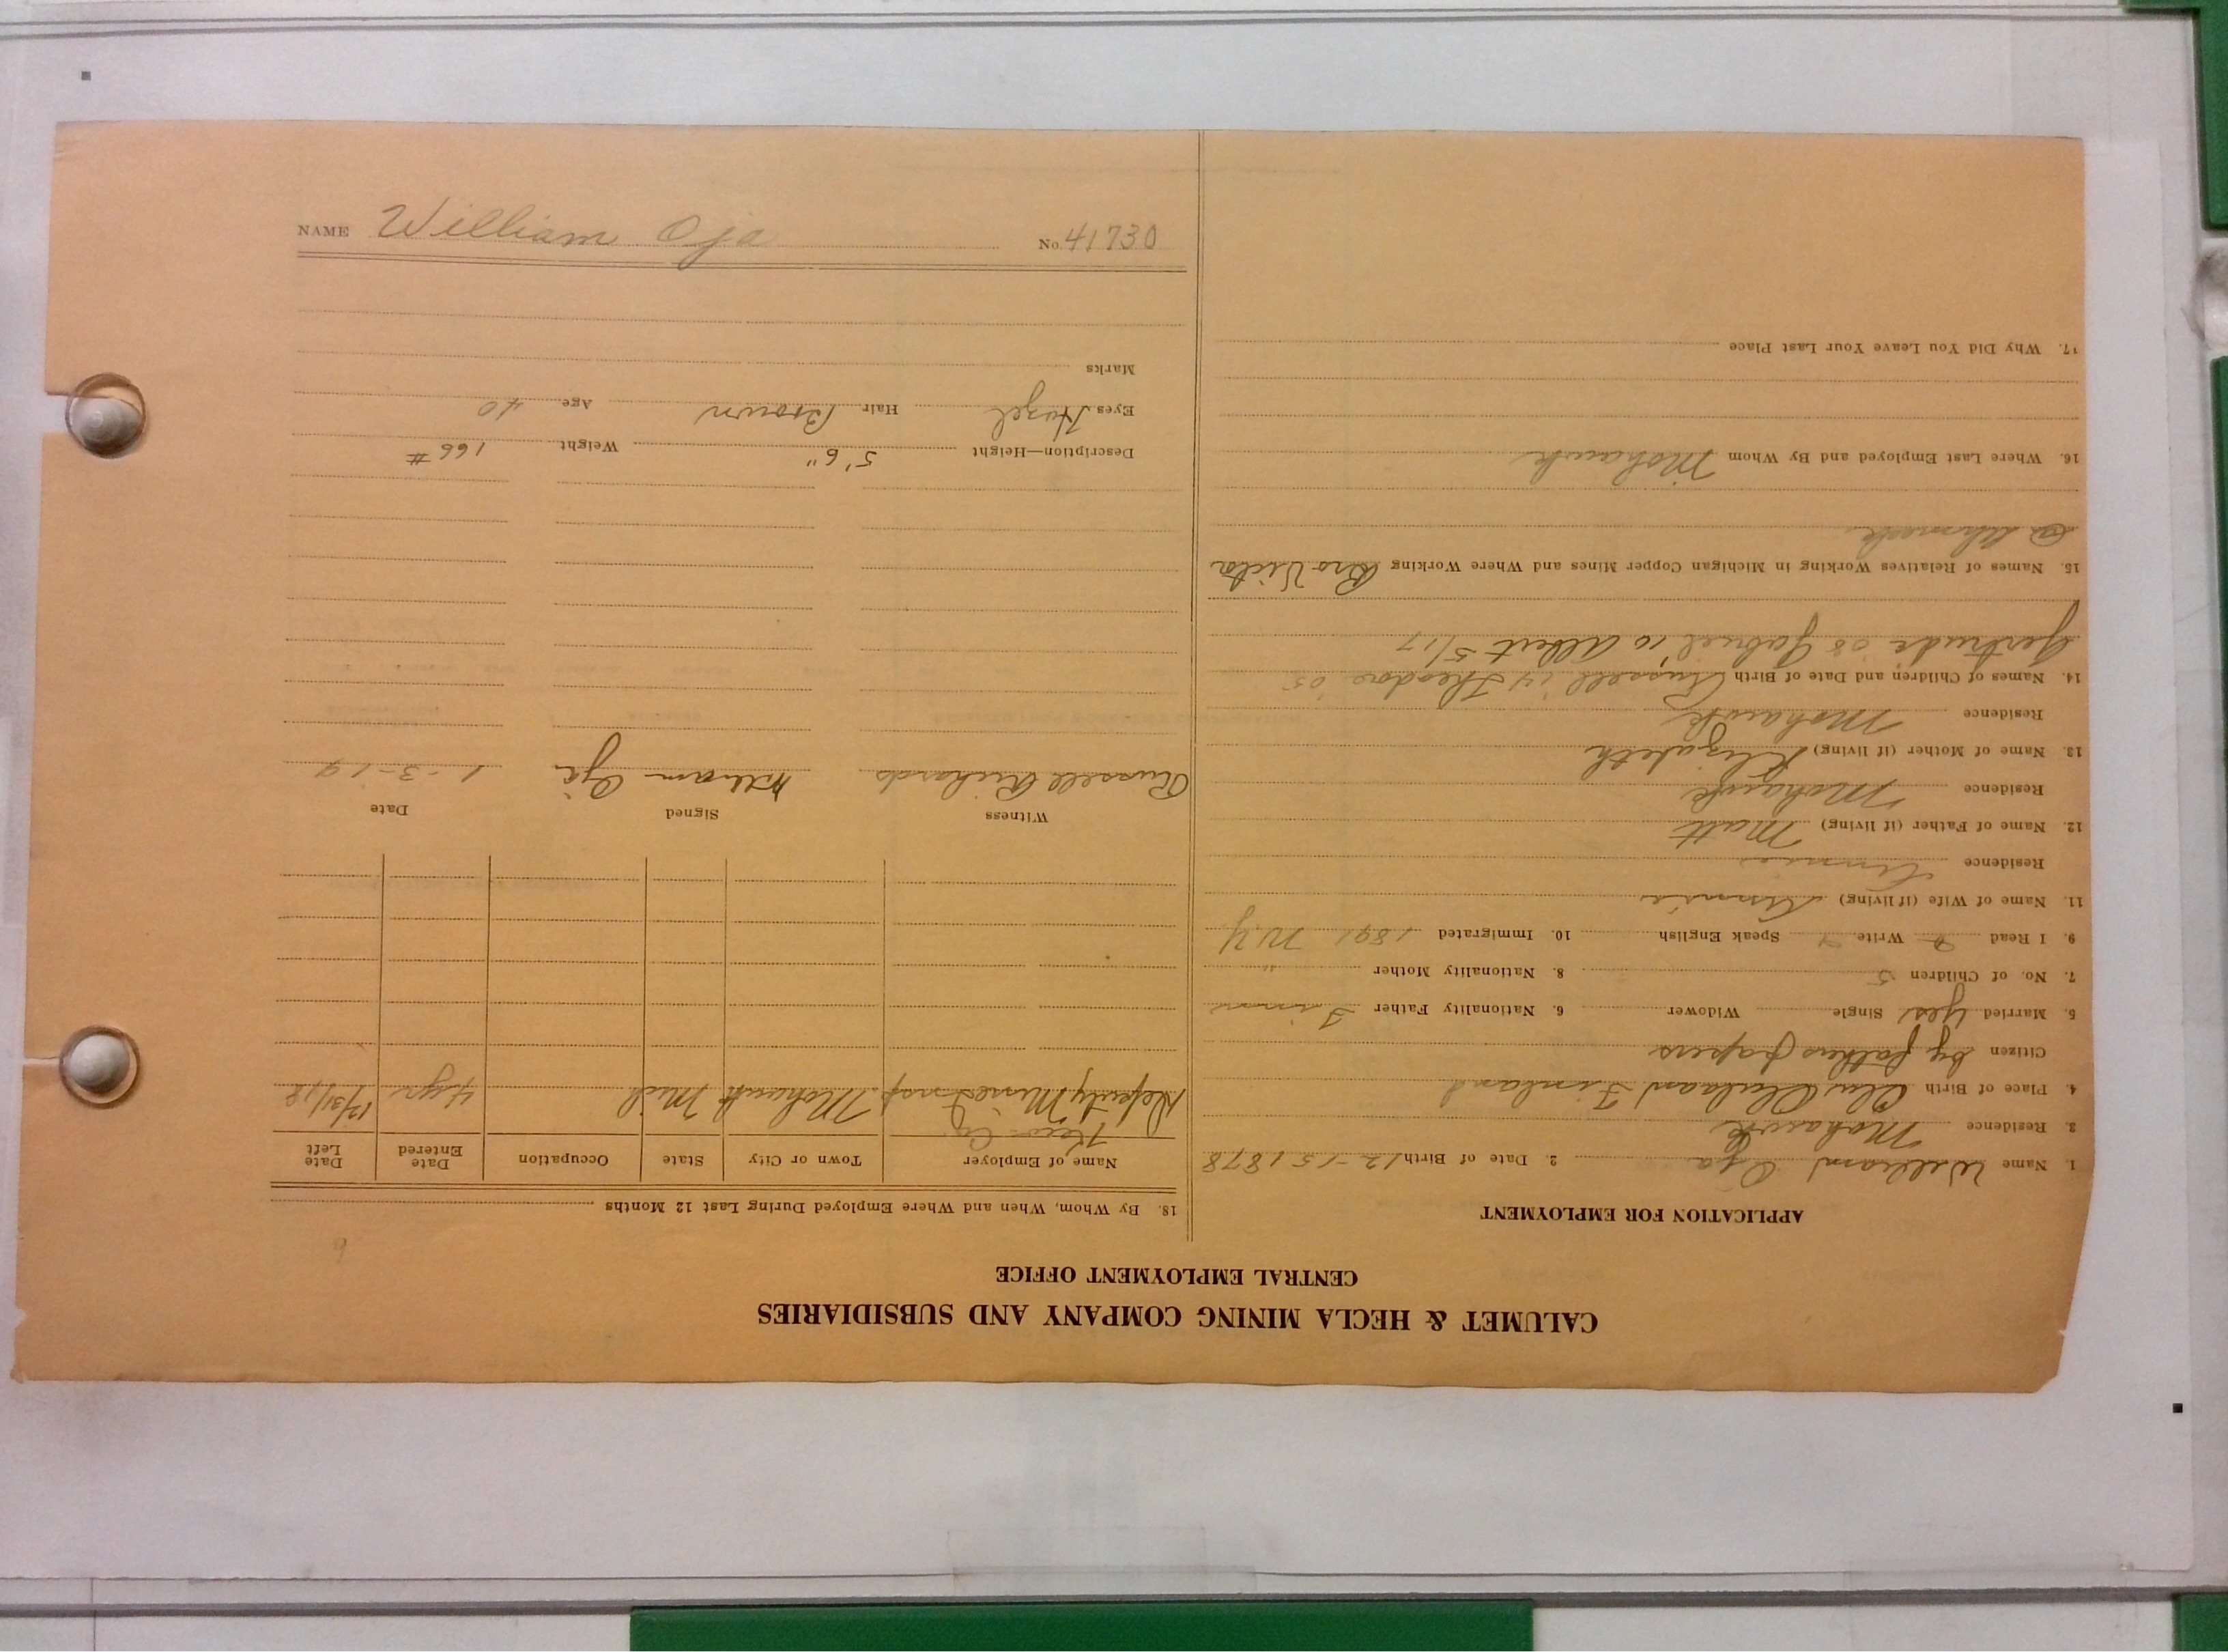 CALUMET & HECLA MINING COMPANY AND SUBSIDIARIES
CENTRAL EMPLOYMENT OFFICE
APPLICATION FOR EMPLOYMENT
1. Name William Oja 2. Date of Birth 12-15 1878
3. Residence Mohawk
4. Place of Birth Finland
Citizen by fathers papers
5. Married yes Single Widower 6. Nationality Father Finn
7. No. of Children 5 8. Nationality Mother "
9. I Read Write Speak English 10. Immigrated 1891 N.Y
11. Name of Wife (if living)
Residence
12. Name of Father (if living) Matt
Residence Mohawk
13. Name of Mother (if living) Elizabeth
Residence Mohawk
14. Names of Children and Date of Birth Russell '14 Theodore '05
Gertrude '08 Gabriel '10 Albert 5/17
15. Names of Relatives Working in Michigan Copper Mines and Where Working Bro Victor
@ Ahmeek
16. Where Last Employed and By Whom Mohawk
17. Why Did You Leave Your Last Place
18. By Whom, When and Where Employed During Last 12 Months
Name of Employer Town or City State Occupation Date Entered Date Left
Deputy Mine Insp Mohawk Mich 4 yrs 12/31/18
Witness Signed Date
Russell Richards William Oja 1-3-19
Description—Height 5'6" Weight 166 #
Eyes Hazel Hair Brown Age 40
Marks
NAME William Oja No. 41730